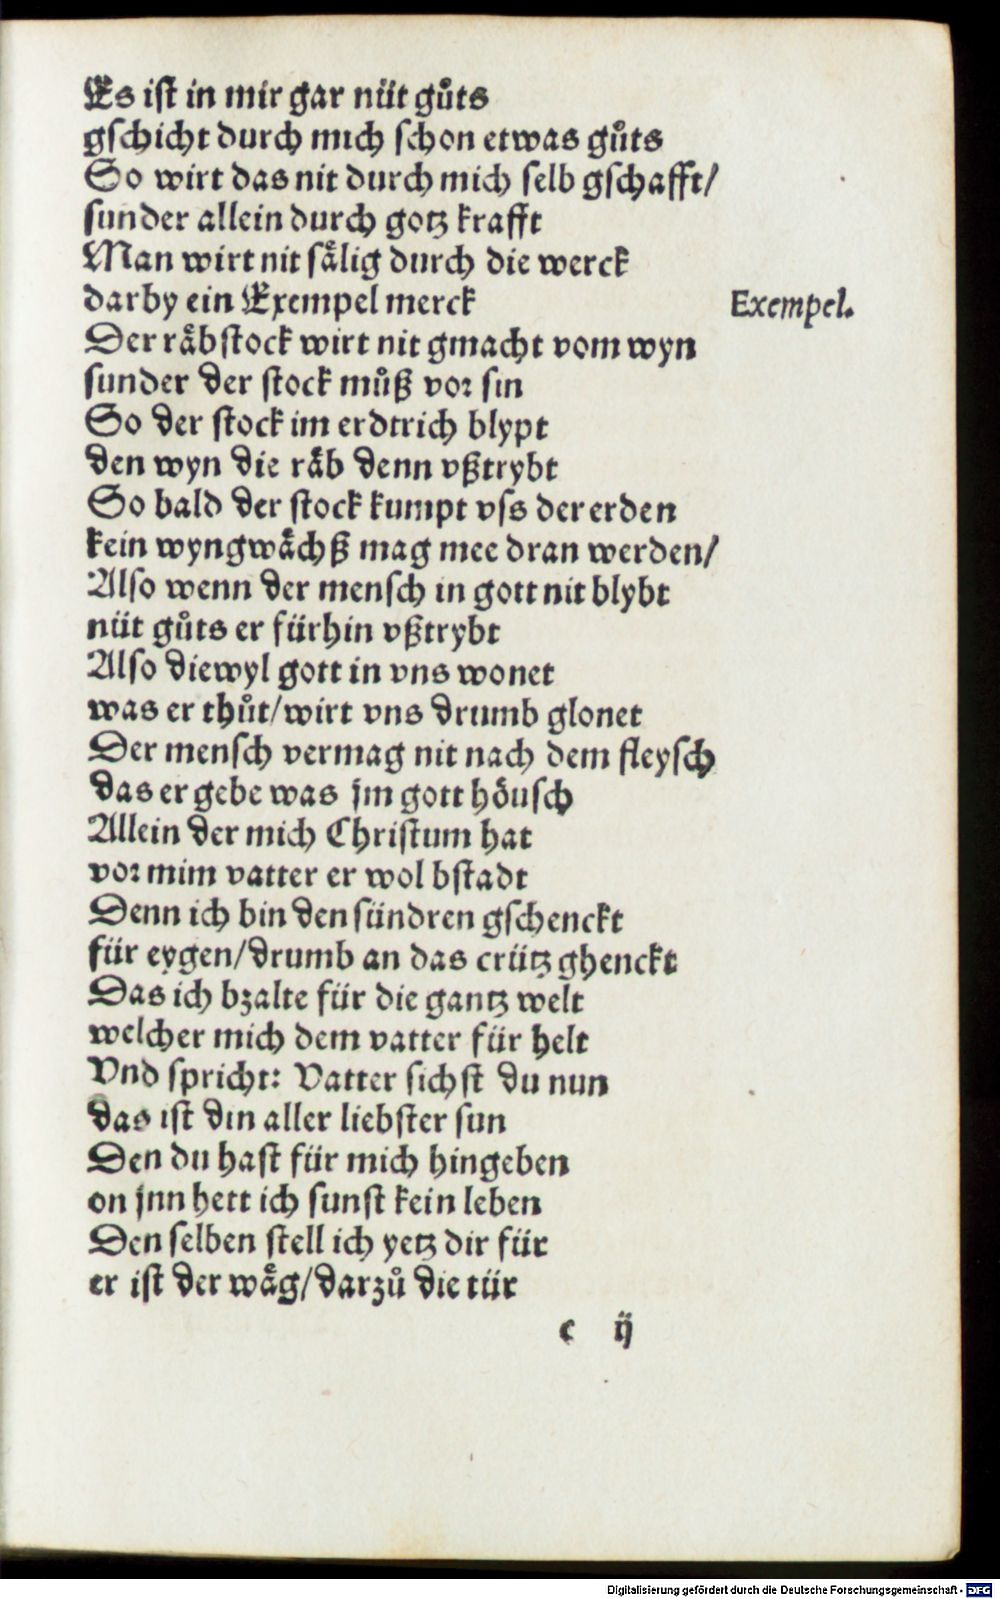 Es ist in mir gar nüt gůts
gschicht durch mich schon etwas gůts
So wirt das nit durch mich selb gschafft/
sunder allein durch gotz krafft
Man wirt nit sälig durch die werck
darby ein Exempel merck
Exempel.
Der räbstock wirt nit gmacht vom wyn
sunder der stock můß vor sin
So der stock im erdtrich blypt
den wyn die räb denn vßtrybt
So bald der stock kumpt vss der erden
kein wyngwächß mag mee dran werden/
Also wenn der mensch in gott nit blybt
nüt gůts er fürhin vßtrybt
Also diewyl gott in vns wonet
was er thůt/wirt vns drumb glonet
Der mensch vermag nit nach dem fleysch
das er gebe was jm gott höusch
Allein der mich Christum hat
vor mim vatter er wol bstadt
Denn ich bin den sündren gschenckt
für eygen/drumb an das crütz ghenckt
Das ich bzalte für die gantz welt
welcher mich dem vatter für helt
Vnd spricht: Vatter sichst du nun
das ist din aller liebster sun
Den du hast für mich hingeben
on jnn hett ich sunst kein leben
Den selben stell ich yetz dir für
er ist der wäg/darzů die tür
c ij
Digitalisierung gefördert durch die Deutsche Forschungsgemeinschaft - DFG